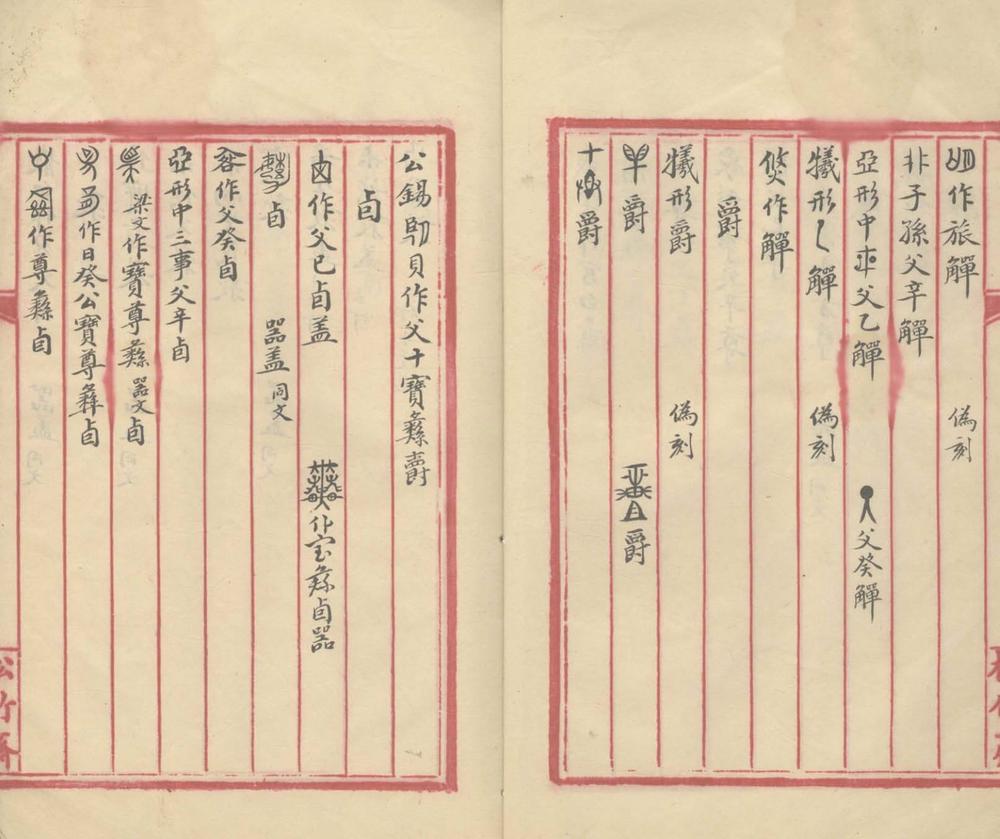 作旅觶 偽刻
非子孫父辛觶
亞形中父乙觶 父癸觶
犧形觶 偽刻
作觶
爵
犧形爵 偽刻
爵 爵
十爵
公錫貝作父十寶彝爵
卣
作父己卣盖 作宝彝卣器
卣 器盖同文
作父癸卣
亞形中三事父辛卣
梁文作寶尊彝器文卣
作日癸公寶尊彝卣
作尊彝卣
松竹斋